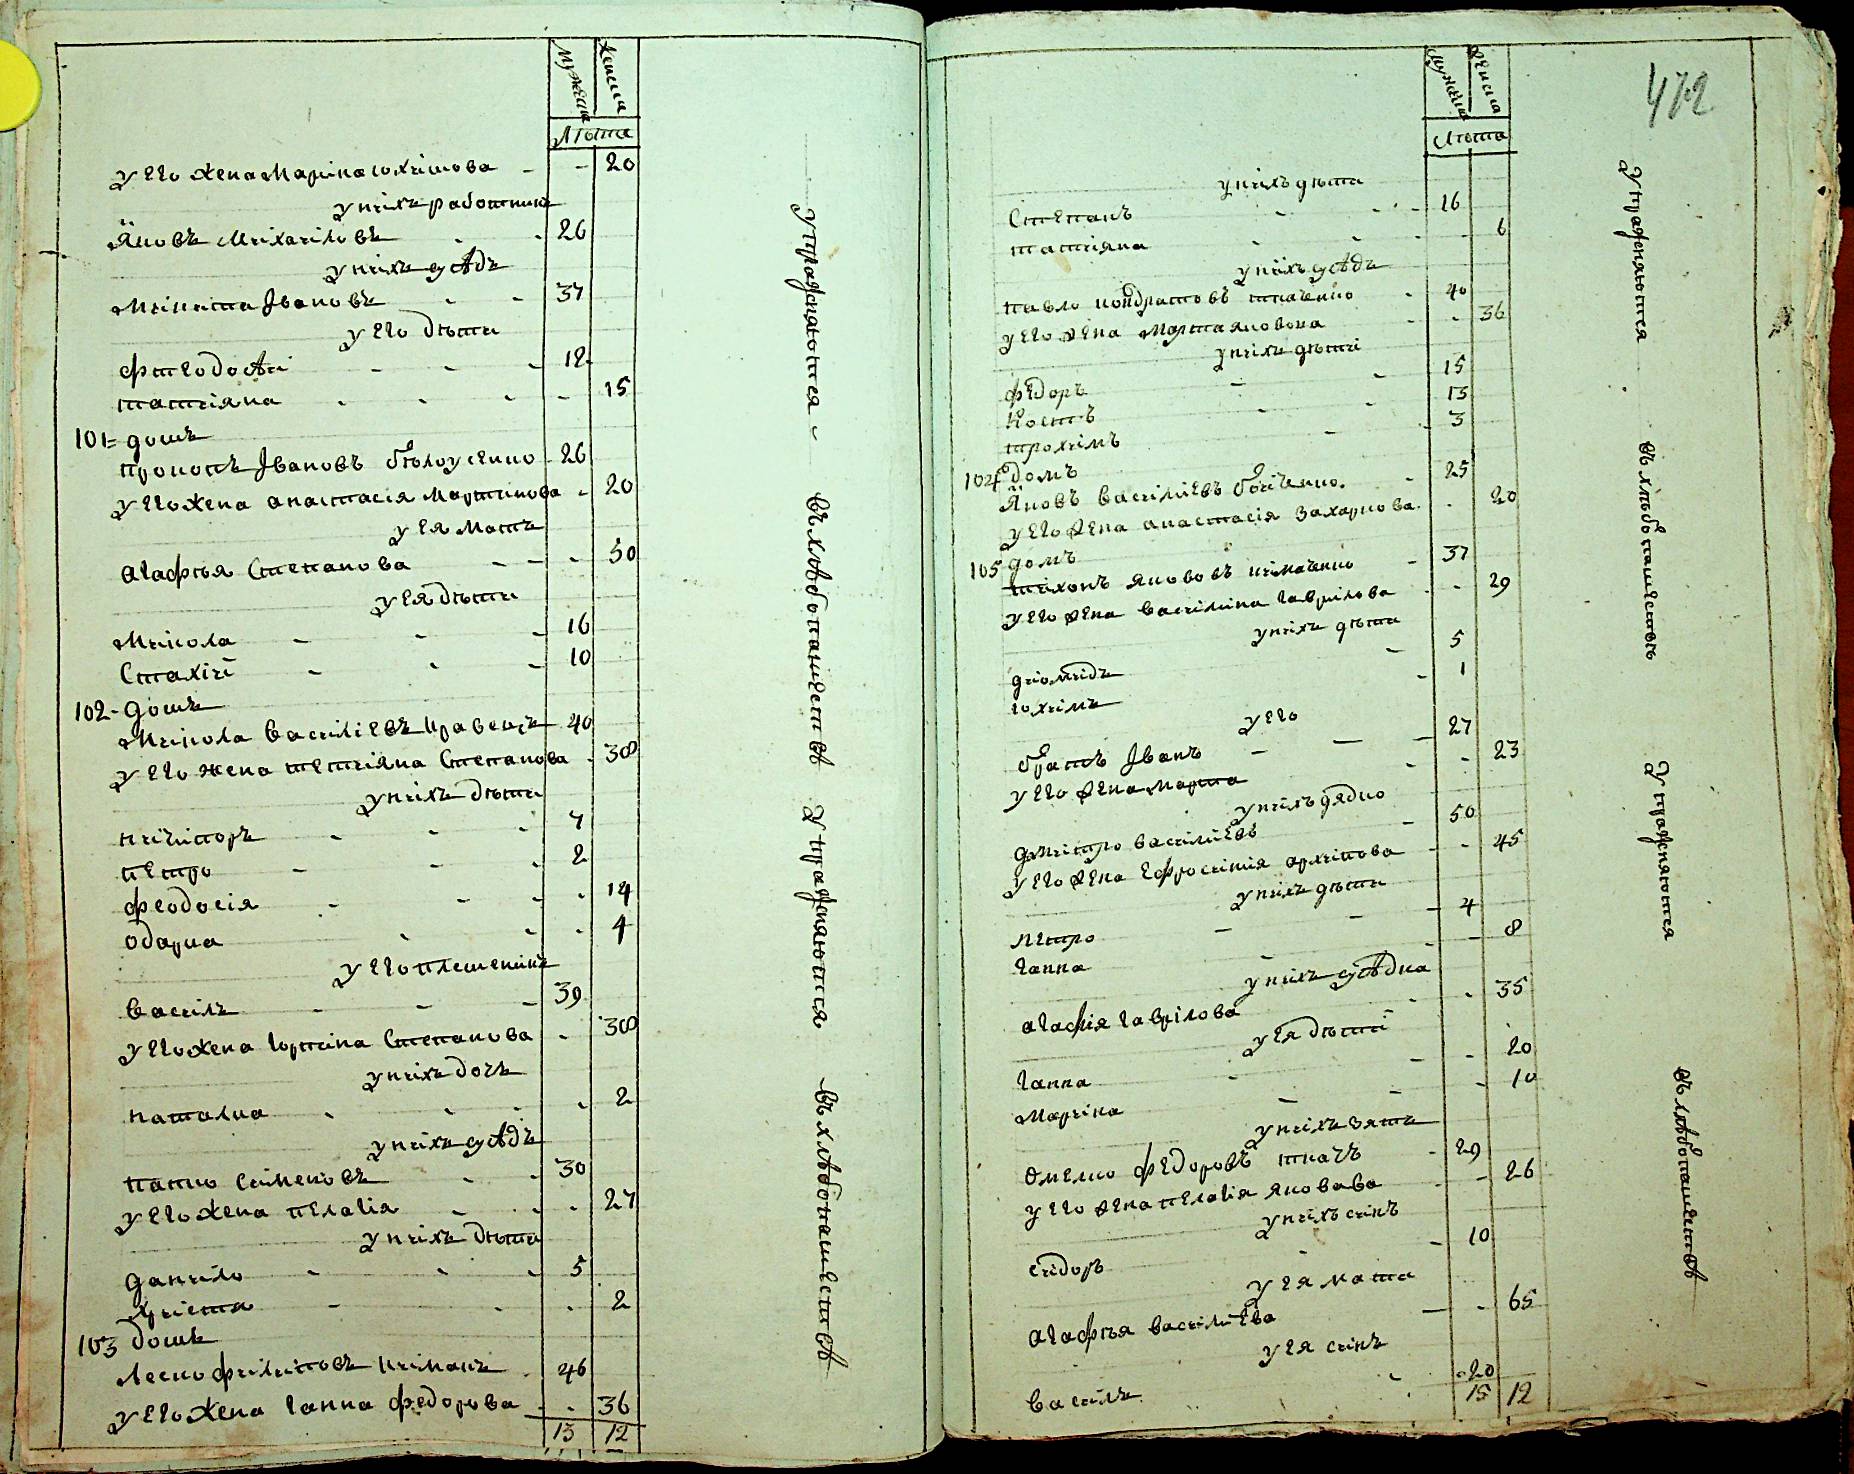 мужеска женска
Лѣта
у его жена Марина юхимова - - 20
у нихъ работникъ
Яковъ Михайловъ - - 26
у нихъ сусѣдъ
Микита Iвановъ - - 37
у его дѣти
Фтеодосѣй - - - 12
татияна - - - - 15
101= домъ
прокопъ Iвановъ бѣлоусенко 26
у его жена анастасiя Мартинова - 20
у ея Мать
агафѣя Степанова - - - 50
у ея дѣти
Микола - - - 16
Стахiй - - - 10
102- домъ
Микола василiевъ кравецъ 40
у его жена татияна Степанова - 38
у нихъ дѣти
никипоръ - - - 7
петро - - - 2
феодосiя - - - - 14
одарка - - - 4
у его племеникъ
василь - - - 39
у его жена Iорина Степанова - 38
у нихъ дочь
наталка - - - - 2
у нихъ сусѣдъ
панко Семеновъ - - 30
у его жена пелагiя - - - 27
у нихъ дѣти
данило - - - 5
христя - - - 2
103 домъ
леско филиповъ кимакъ - 46
у его жена ганна федорова - - 36
13 12
упражняются -
въ хлѣбопашествѣ
упражняются
въ хлѣбопашествѣ
472
мужеска женска
Лѣта
у нихъ дѣти
Степанъ - - - 16
татияна - - - 6
у нихъ сусѣдъ
павло кондратовъ ткаченко - 40
у его жена Марта яковова - - 36
у нихъ дѣти
федоръ - - 15
Костъ - - 13
трохимъ - - 3
104 домъ
Яковъ василиевъ бойченко - 25
у его жена анастасiя захарчова - 20
105 домъ
тихонъ якововъ кимаченко - 37
у его жена василина гаврилова - - 29
у нихъ дѣти
диомидъ - 5
юхимъ - 1
у его
братъ Iванъ - - - 27
у его жена Марта - - 23
у нихъ дядко
дмитро василиевъ - 50
у его жена Ефросиния архипова - - 45
у нихъ дѣти
петро - - - 4
ганна - - - 8
у нихъ сусѣдка
агафiя гаврилова - - 35
у ея дѣти
ганна - - - 20
Марина - - 10
у нихъ зять
Омелко федоровъ ткачъ - 29
у его жена пелагiя яковова - - 26
у нихъ синъ
сидоръ - - 10
у ея мати
агафѣя василиева - - 65
у ея синъ
василь - - 20
15 12
Упражняются
въ хлѣбопашествѣ
Упражняются
въ хлѣбопашествѣ